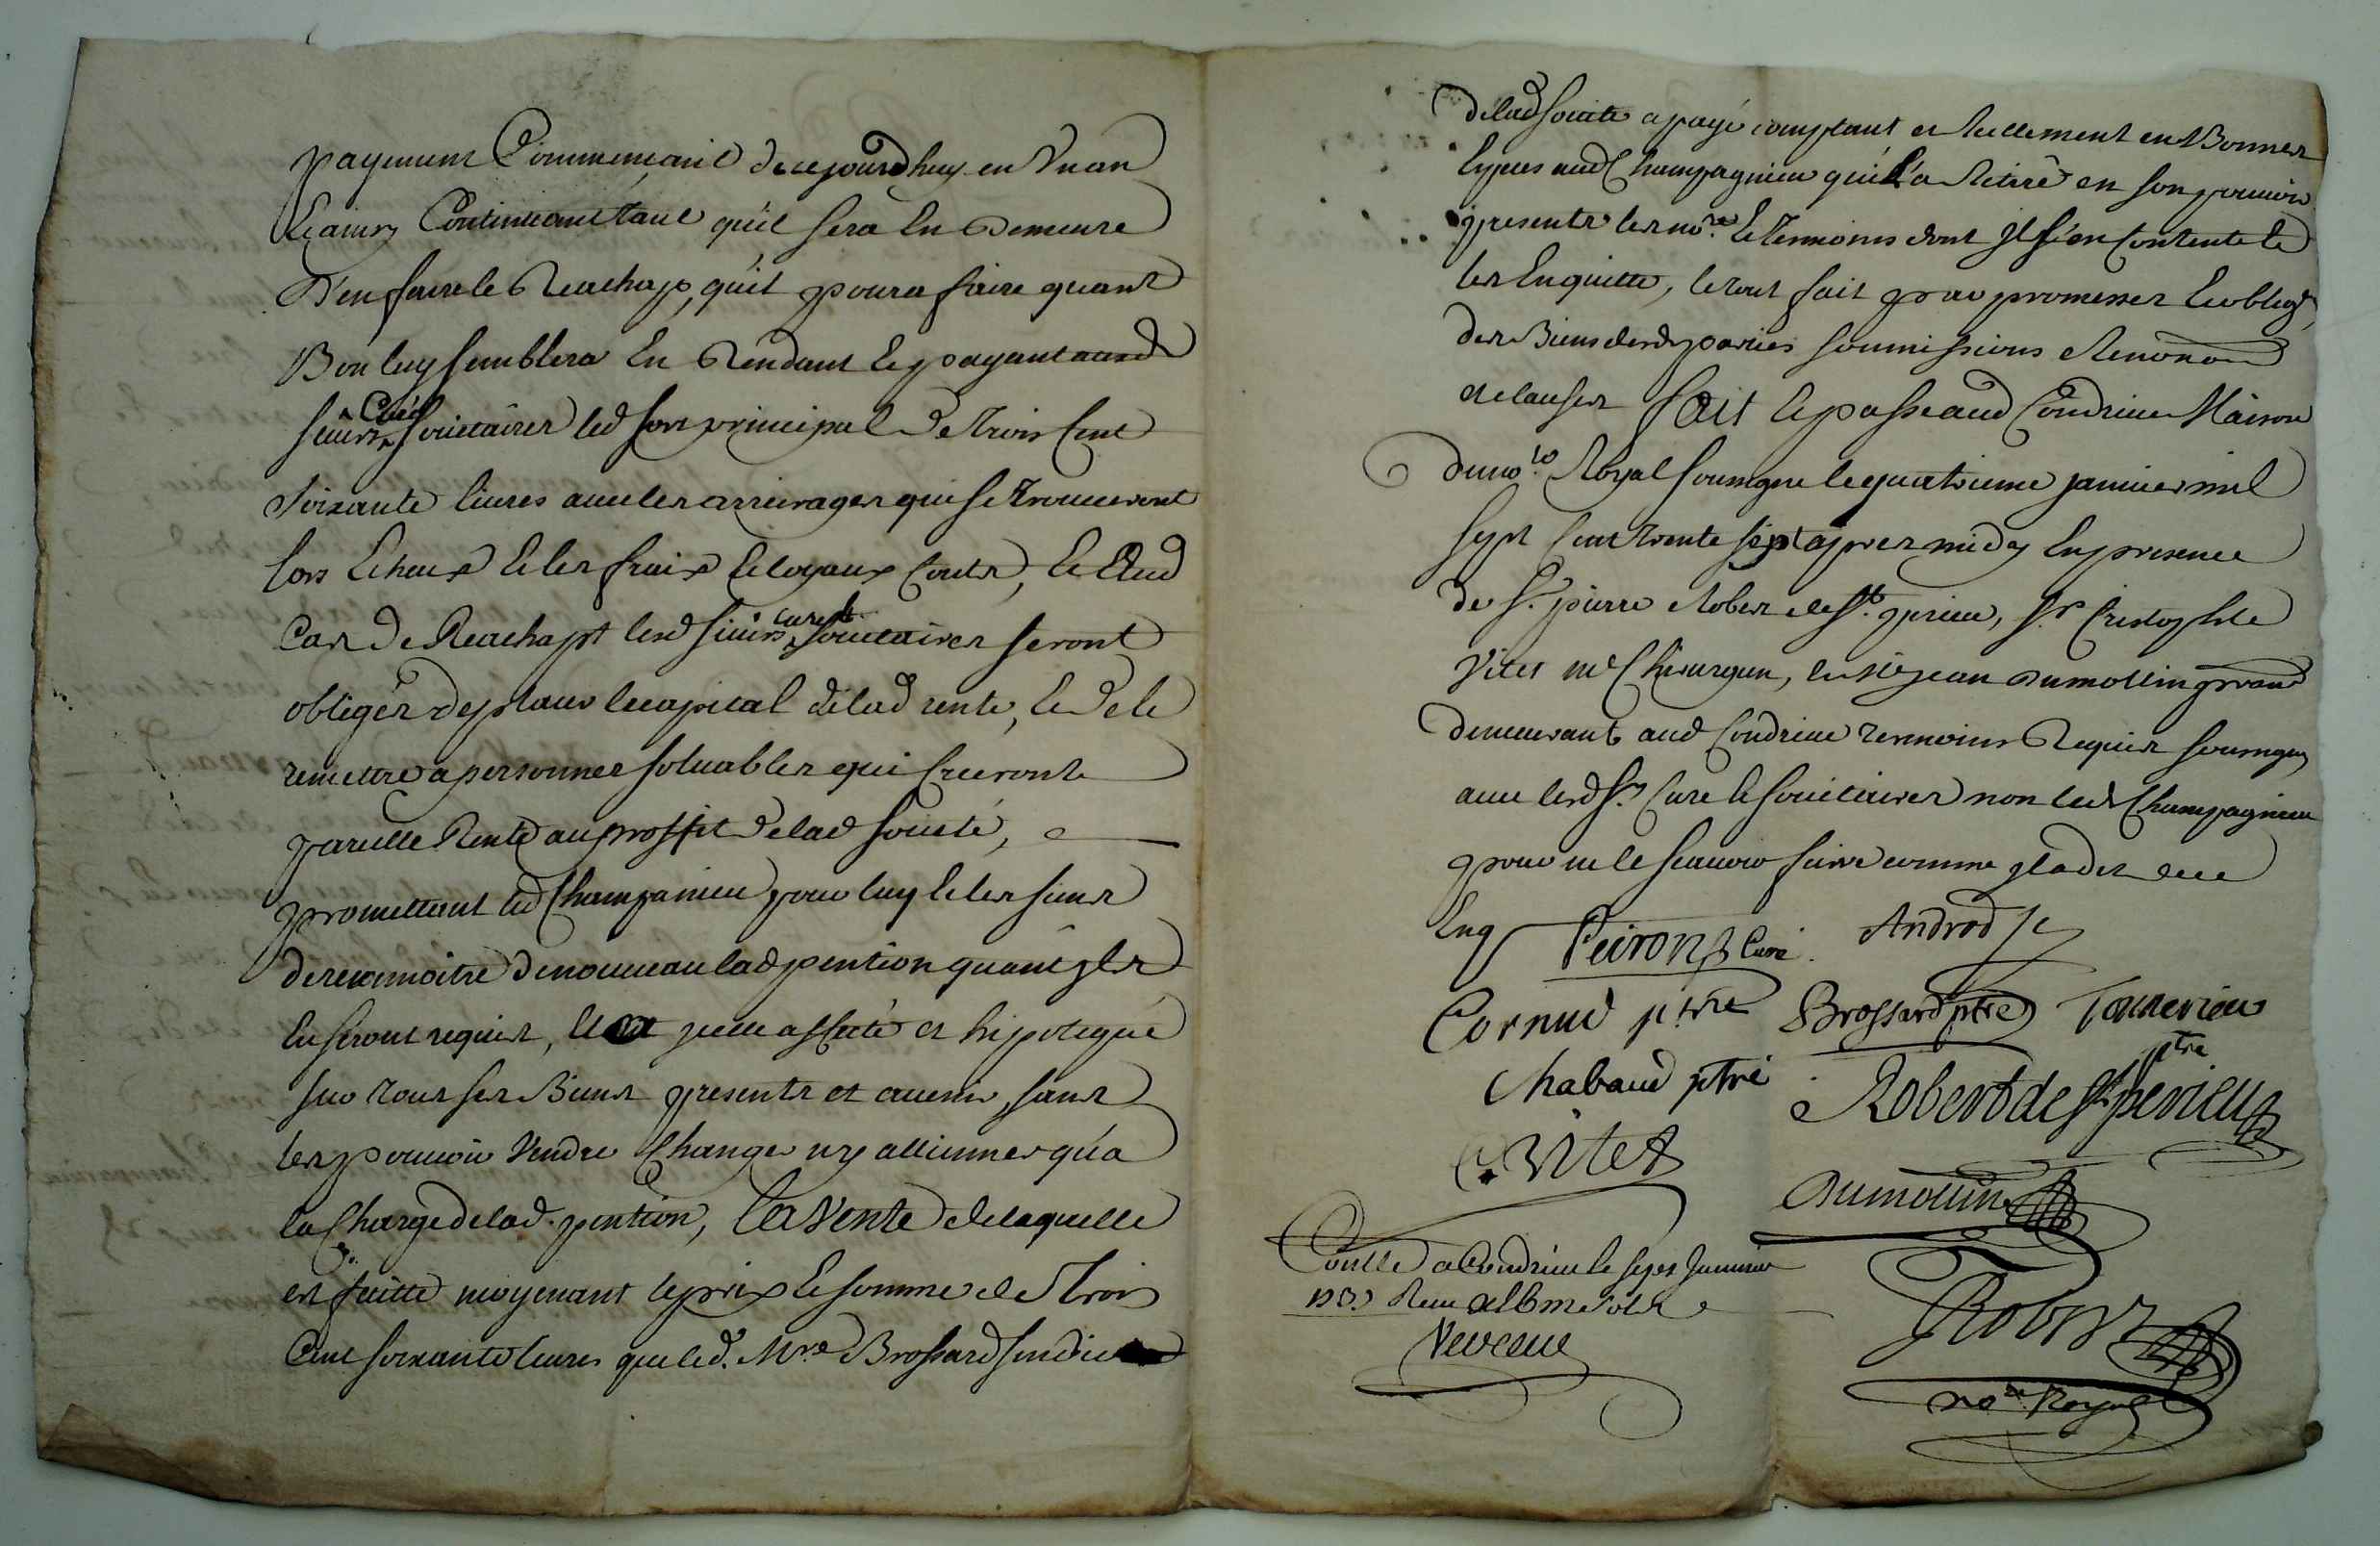 payement Commencant de cejourdhuy en Vn an
Et ainsy Continuant tant quil sera En Demeure
D'en faire le Reachapt, quil poura faire quant
Bon luy semblera En Rendant Et payant ausd
sieurs Societaires led sort principal De Trois Cent
Curé
soixante livres avec les arrierages qui se Trouveront
lors Echeus Et les fraix Et loyaux Couts, Et Aud
Cas de Reachapt lesd sieurs Societaires seront
curé et
obligés de placer le capital de lad rente, Et de le
remettre a personnes soluables qui Creeront
pareille Rente au proffit de lad societé,
promettant led Champanieu pour luy Et les siens
de reconnoitre de nouueau lad pention quant ils
En seront requis, Et icelle affecté et hipotequé
sur tous ses Biens presents et auenir, sans
les pouuoir Vendre Changer ny allienner qu'a
la Charge de lad. pention, la Vente de laquelle
est faitte moyenant le prix Et somme de Trois
Cent soixante liures que led. Mre Brossard sindic
de lad societe a payé comptant et reellement en Bonnes
Especes aud Champagnieu qui l'a Retiré en son pouuoir
presents les nore Et Temoins dont il s'en Contente Et
les En quitte, le tout fait par promesses Et oblig
des Biens desd parties soumissions Renon
et clauses fait Et passé aud Condrieu Maison
du nore Royal soussigne le quatrieme januier mil
sept Cent trente sept apres midy En presence
de Sr. pierre Robert de St. prieu, Sr Cristophle
Vitet me Chirurgien, et Me jean Dumollin
demeurant aud Condrieu temoins Requis soussignes
auec lesd Srs Curé Et societaires non led Champagnieu
pour ne le scauoir faire comme il a dit de ce
Enq
Peiron Curé. Androd
Cornud ptre Brossard ptre Tournerieu
ptre
Chabaud ptre Robert de St perieu
C. Vitet
Dumollin
Conllé a Condrieu le sept Januier
1737 Receu
Robert
nore Royal